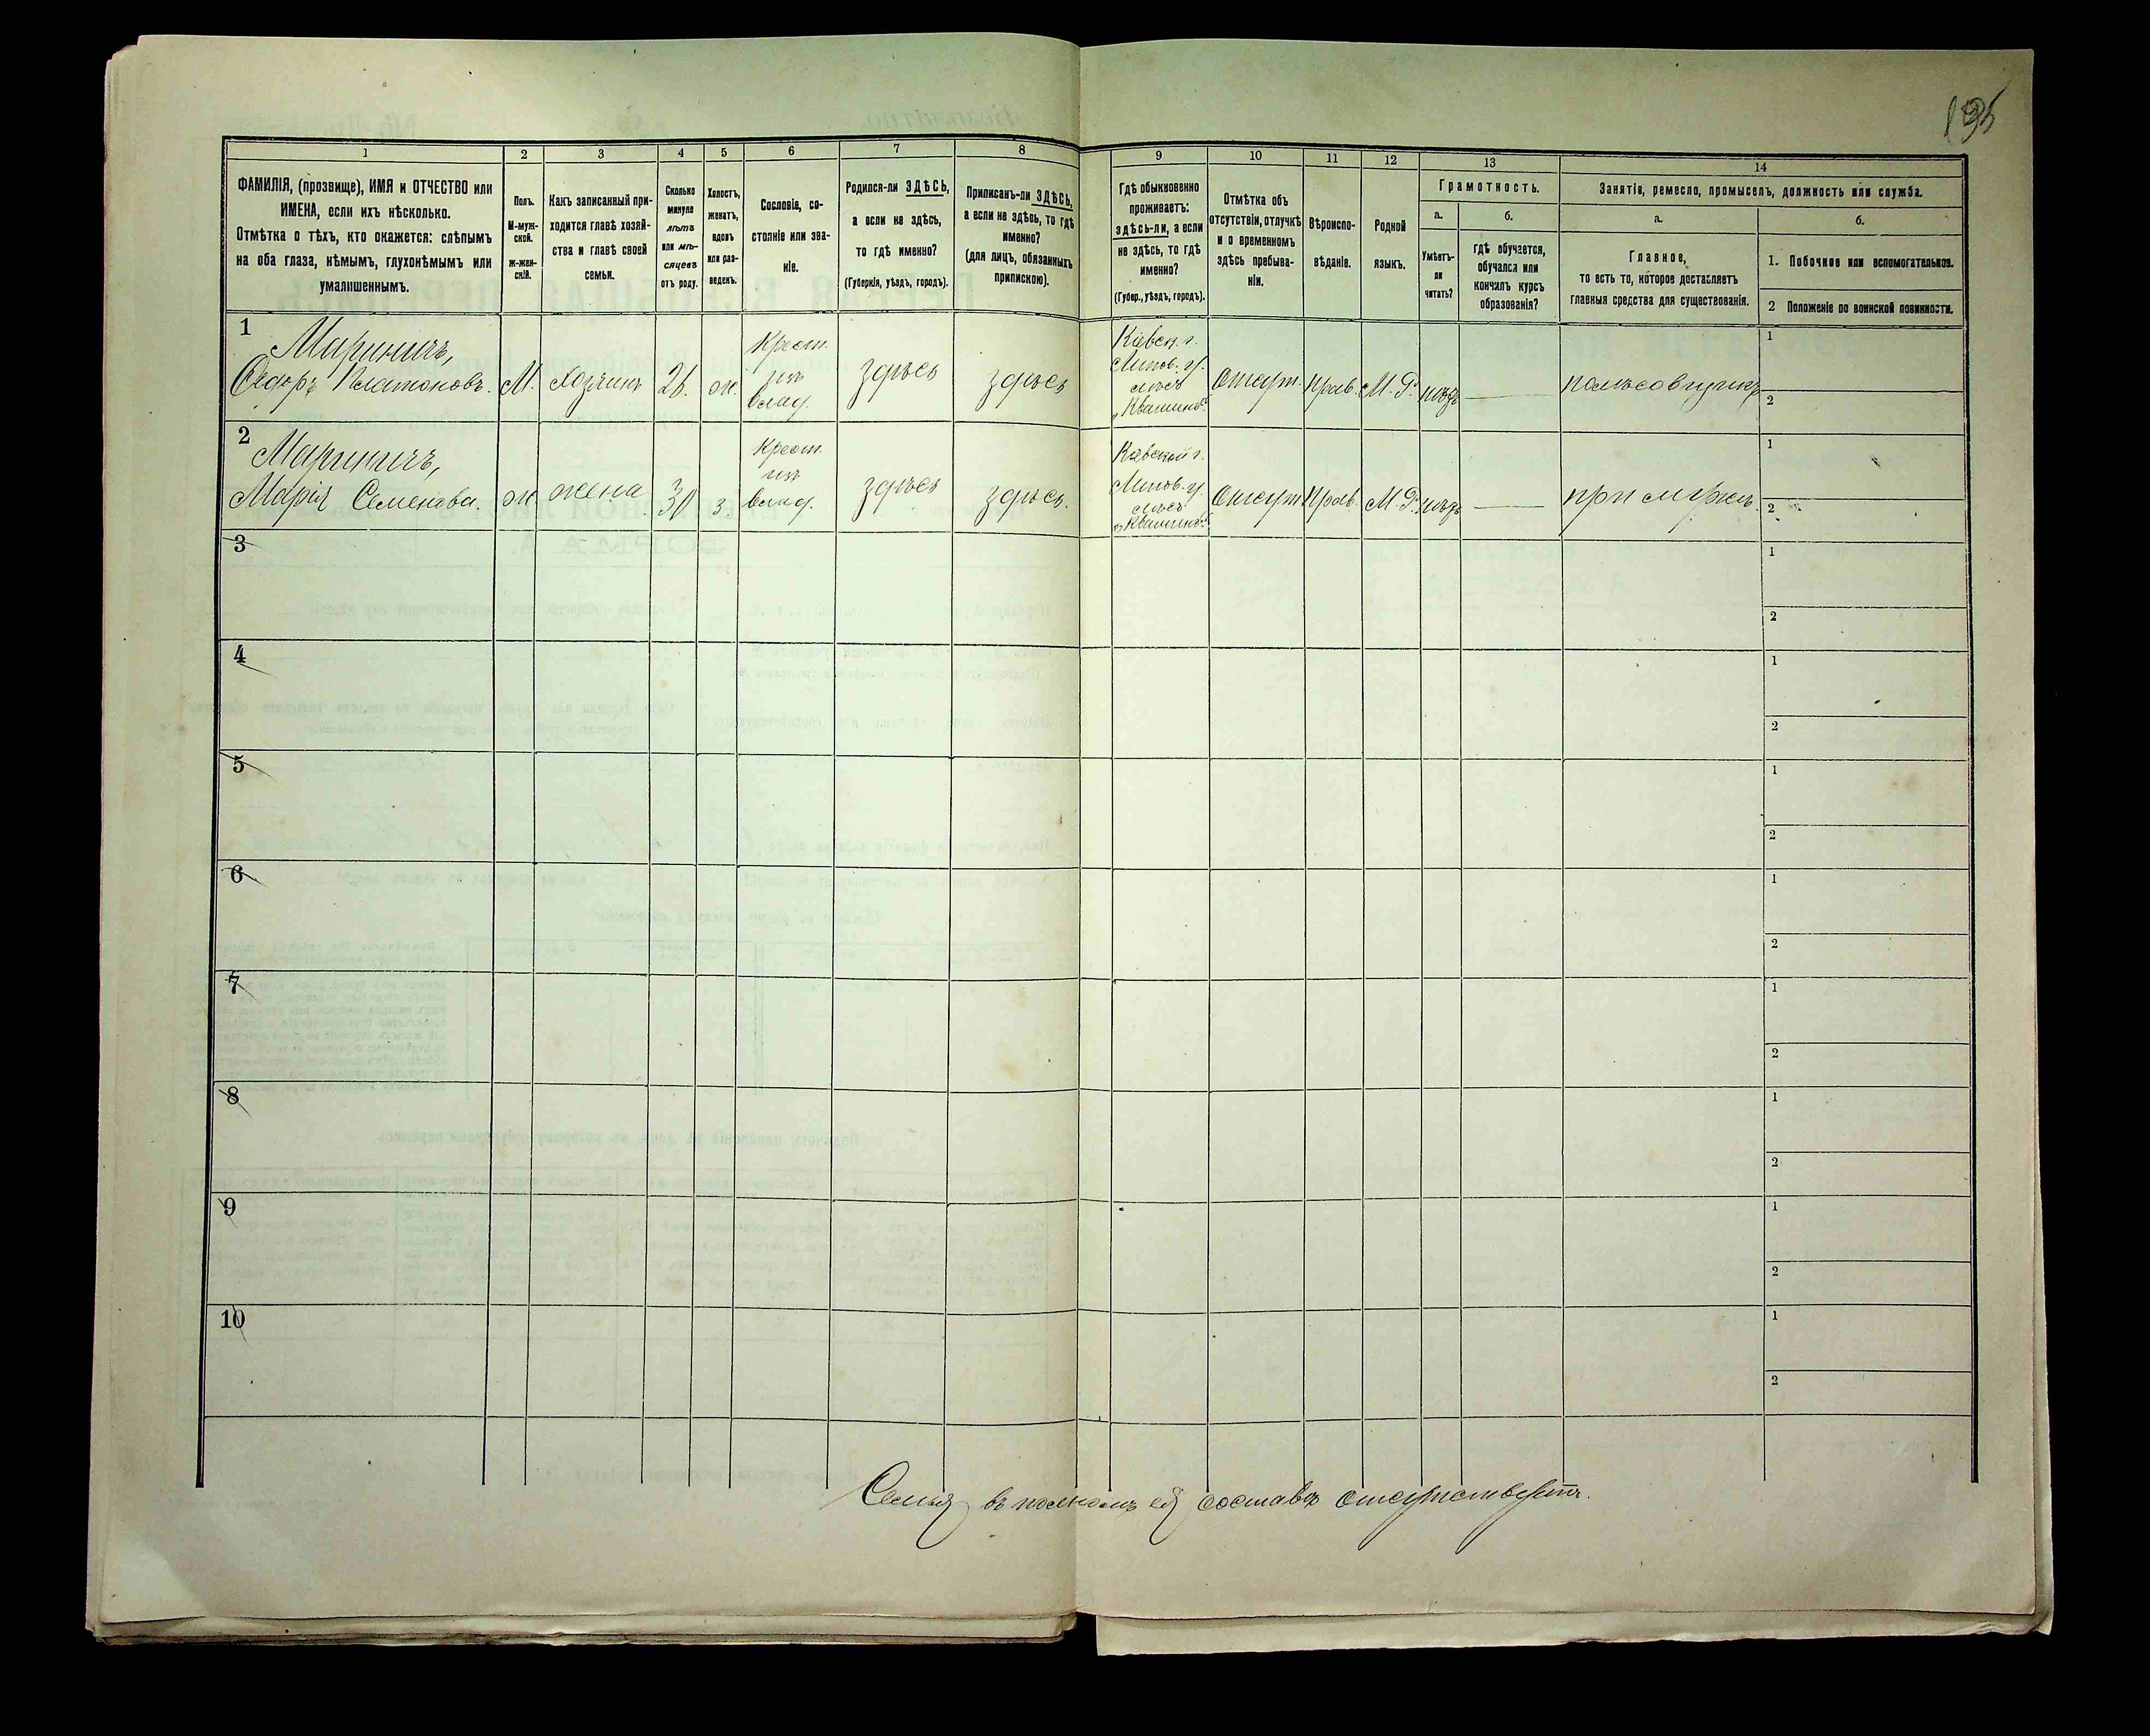 195
1 2 3 4 5 6 7 8 9 10 11 12 13 14
ФАМИЛІЯ, (прозвище), ИМЯ и ОТЧЕСТВО или
ИМЕНА, если ихъ нѣсколько.
Отмѣтка о тѣхъ, кто окажется: слѣпымъ
на оба глаза, нѣмымъ, глухонѣмымъ или
умалишеннымъ.
Полъ.
М-муж-
ской.
Ж-жен-
скій.
Какъ записанный при-
ходится главѣ хозяй-
ства и главѣ своей
семьи.
Сколько
минуло
лѣтъ
или мѣ-
сяцевъ
отъ роду.
Холостъ,
женатъ,
вдовъ
или раз-
веденъ.
Сословіе, со-
стояніе или зва-
ніе.
Родился-ли ЗДѢСЬ,
а если не здѣсь,
то гдѣ именно?
(Губернія, уѣздъ, городъ).
Приписанъ-ли ЗДѢСЬ,
а если не здѣсь, то гдѣ
именно?
(для лицъ, обязанныхъ
припискою).
Гдѣ обыкновенно
проживаетъ:
здѣсь-ли, а если
не здѣсь, то гдѣ
именно?
(Губер., уѣздъ, городъ).
Отмѣтка объ
отсутствіи, отлучкѣ
и о временномъ
здѣсь пребыва-
ніи.
Вѣроиспо-
вѣданіе.
Родной
языкъ.
Грамотность.
а.
Умѣетъ-
ли
читать?
б.
гдѣ обучается,
обучался или
кончилъ курсъ
образованія?
Занятіе, ремесло, промыселъ, должность или служба.
а.
Главное,
то есть то, которое доставляетъ
главныя средства для существованія.
б.
1. Побочное или вспомогательное.
2 Положеніе по воинской повинности.
1
Мариничъ,
Федоръ Платоновъ.
М.
хозяинъ
26.
ж.
Крест.
изъ
влад.
здѣсь
здѣсь
Кіевск. г.
Липов. у.
лѣсъ
„Квашино“
Отсут.
Прав.
М. Р.
нѣтъ
—
полѣсовщикъ
1
2
2
Мариничъ,
Марія Семенова.
ж.
жена
30
з.
Крест.
изъ
влад.
здѣсь
здѣсь.
Кіевской г.
Липов. у.
лѣсъ
„Квашино“
Отсут.
Прав.
М. Р.
нѣтъ
—
при мужѣ.
1
2
3
1
2
4
1
2
5
1
2
6
1
2
7
1
2
8
1
2
9
1
2
10
1
2
Семья въ полномъ ея составѣ отсутствуетъ.